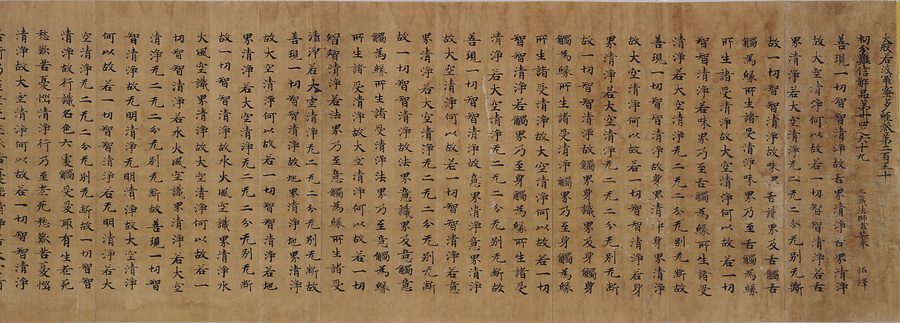 大般若波羅蜜多經卷第二百五十
初分難信解品第卅四之六十九 三藏法師玄奘奉 詔譯
善現一切智智清淨故舌界清淨舌界清淨
故大空清淨何以故若一切智智清淨若舌
界清淨若大空清淨无二无二分无別无斷
故一切智智清淨故味界舌識界及舌觸舌
觸為緣所生諸受清淨味界乃至舌觸為緣
所生諸受清淨故大空清淨何以故若一切
智智清淨若味界乃至舌觸為緣所生諸受
清淨若大空清淨无二无二分无別无斷故
善現一切智智清淨故身界清淨身界清淨
故大空清淨何以故若一切智智清淨若身
界清淨若大空清淨无二无二分无別无斷
故一切智智清淨故觸界身識界及身觸身
觸為緣所生諸受清淨觸界乃至身觸為緣
所生諸受清淨故大空清淨何以故若一切
智智清淨若觸界乃至身觸為緣所生諸受
清淨若大空清淨无二无二分无別无斷故
善現一切智智清淨故意界清淨意界清淨
故大空清淨何以故若一切智智清淨若意
界清淨若大空清淨无二无二分无別无斷
故一切智智清淨故法界意識界及意觸意
觸為緣所生諸受清淨法界乃至意觸為緣
所生諸受清淨故大空清淨何以故若一切
智智清淨若法界乃至意觸為緣所生諸受
清淨若大空清淨无二无二分无別无斷故
善現一切智智清淨故地界清淨地界清淨
故大空清淨何以故若一切智智清淨若地
界清淨若大空清淨无二无二分无別无斷
故一切智智清淨故水火風空識界清淨水
火風空識界清淨故大空清淨何以故若一
切智智清淨若水火風空識界清淨若大空
清淨无二无二分无別无斷故善現一切智
智清淨故无明清淨无明清淨故大空清淨
何以故若一切智智清淨若无明清淨若大
空清淨无二无二分无別无斷故一切智智
清淨故行識名色六處觸受愛取有生老死
愁歎苦憂惱清淨行乃至老死愁歎苦憂惱
清淨故大空清淨何以故若一切智智清淨